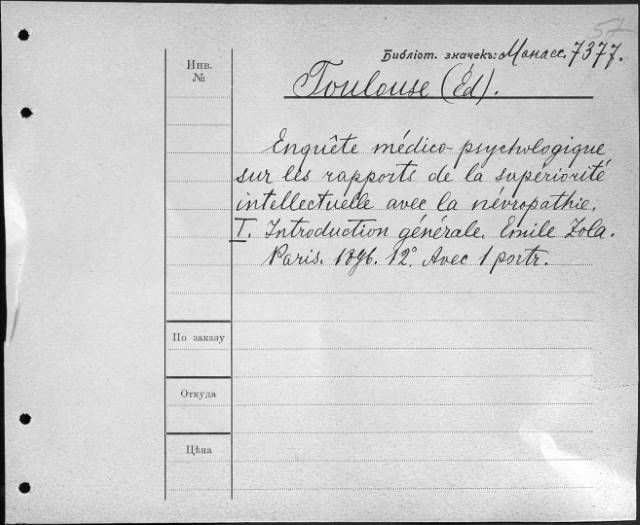 57
Библіот. значекъ: Манасс. 7377.
Инв.
№
Toulouse (Éd).
Enquête médico-psychologique
sur les rapports de la supériorité
intellectuelle avec la névropathie.
I. Introduction générale. Emile Zola.
Paris. 1896. 12° Avec 1 portr.
По заказу
Откуда
Цѣна